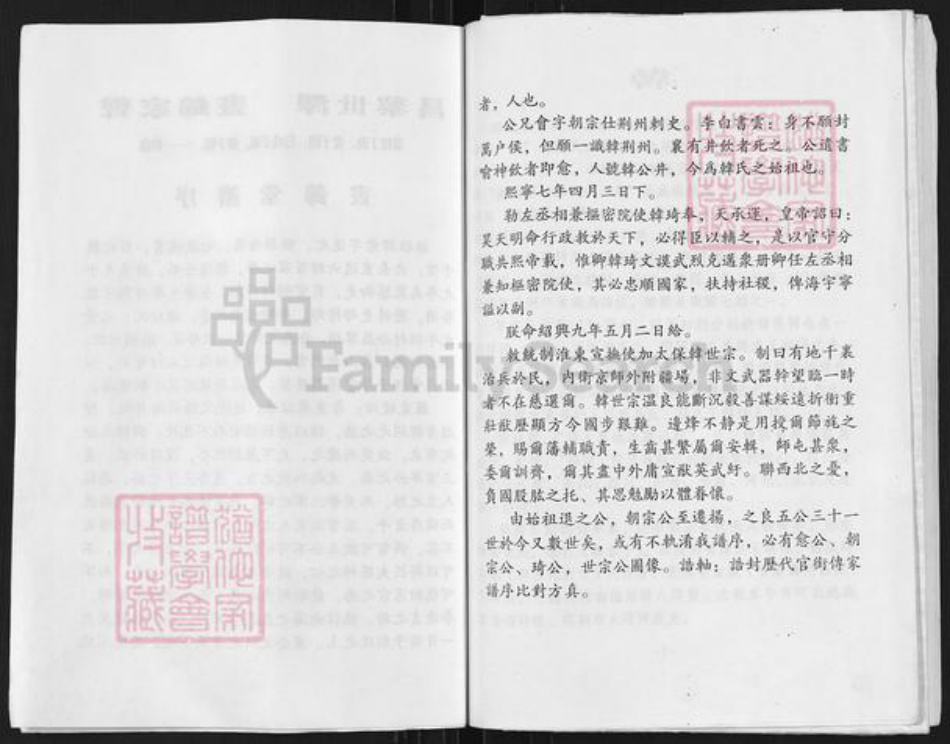 者，人也。
公兄會字朝宗仕荆州刺史。李白書雲：身不願封
萬户侯，但願一識韓荆州。襄有井飲者死之。公遺書
喻神飲者即愈，人號韓公井，今爲韓氏之始祖也。
熙寧七年四月三日下。
勑左丞相兼樞密院使韓琦奉，天承運，皇帝詔曰：
昊天明命行政教於天下，必得臣以輔之，是以官守分
職共熙帝載，惟卿韓琦文謨武烈克邁衆册卿任左丞相
兼知樞密院使，其必忠順國家，扶持社稷，俾海宇寧
謐以副。
朕命紹興九年五月二日給。
敕統制淮東宣撫使加太保韓世宗。制曰有地千裏
治兵於民，内衛京師外附疆場，非文武器幹望臨一時
者不在慈選爾。韓世宗温良能斷沉毅善謀綏遠折衝重
壯猷歷顯方今國步艱難。邊烽不静是用授爾節旄之
榮，賜爾藩輔職貴，生齒甚繁屬爾安輯，師屯甚衆，
委爾訓齊，爾其盡中外庸宣猷英武紆。聯西北之憂，
負國股肱之托、其思勉勵以體眷懷。
由始祖退之公，朝宗公至遷揚，之良五公三十一
世於今又數世矣，或有不軌淆我譜序，必有愈公、朝
宗公、琦公，世宗公圖像。誥軸：誥封歷代官銜傳家
譜序比對方真。
FamilySearch